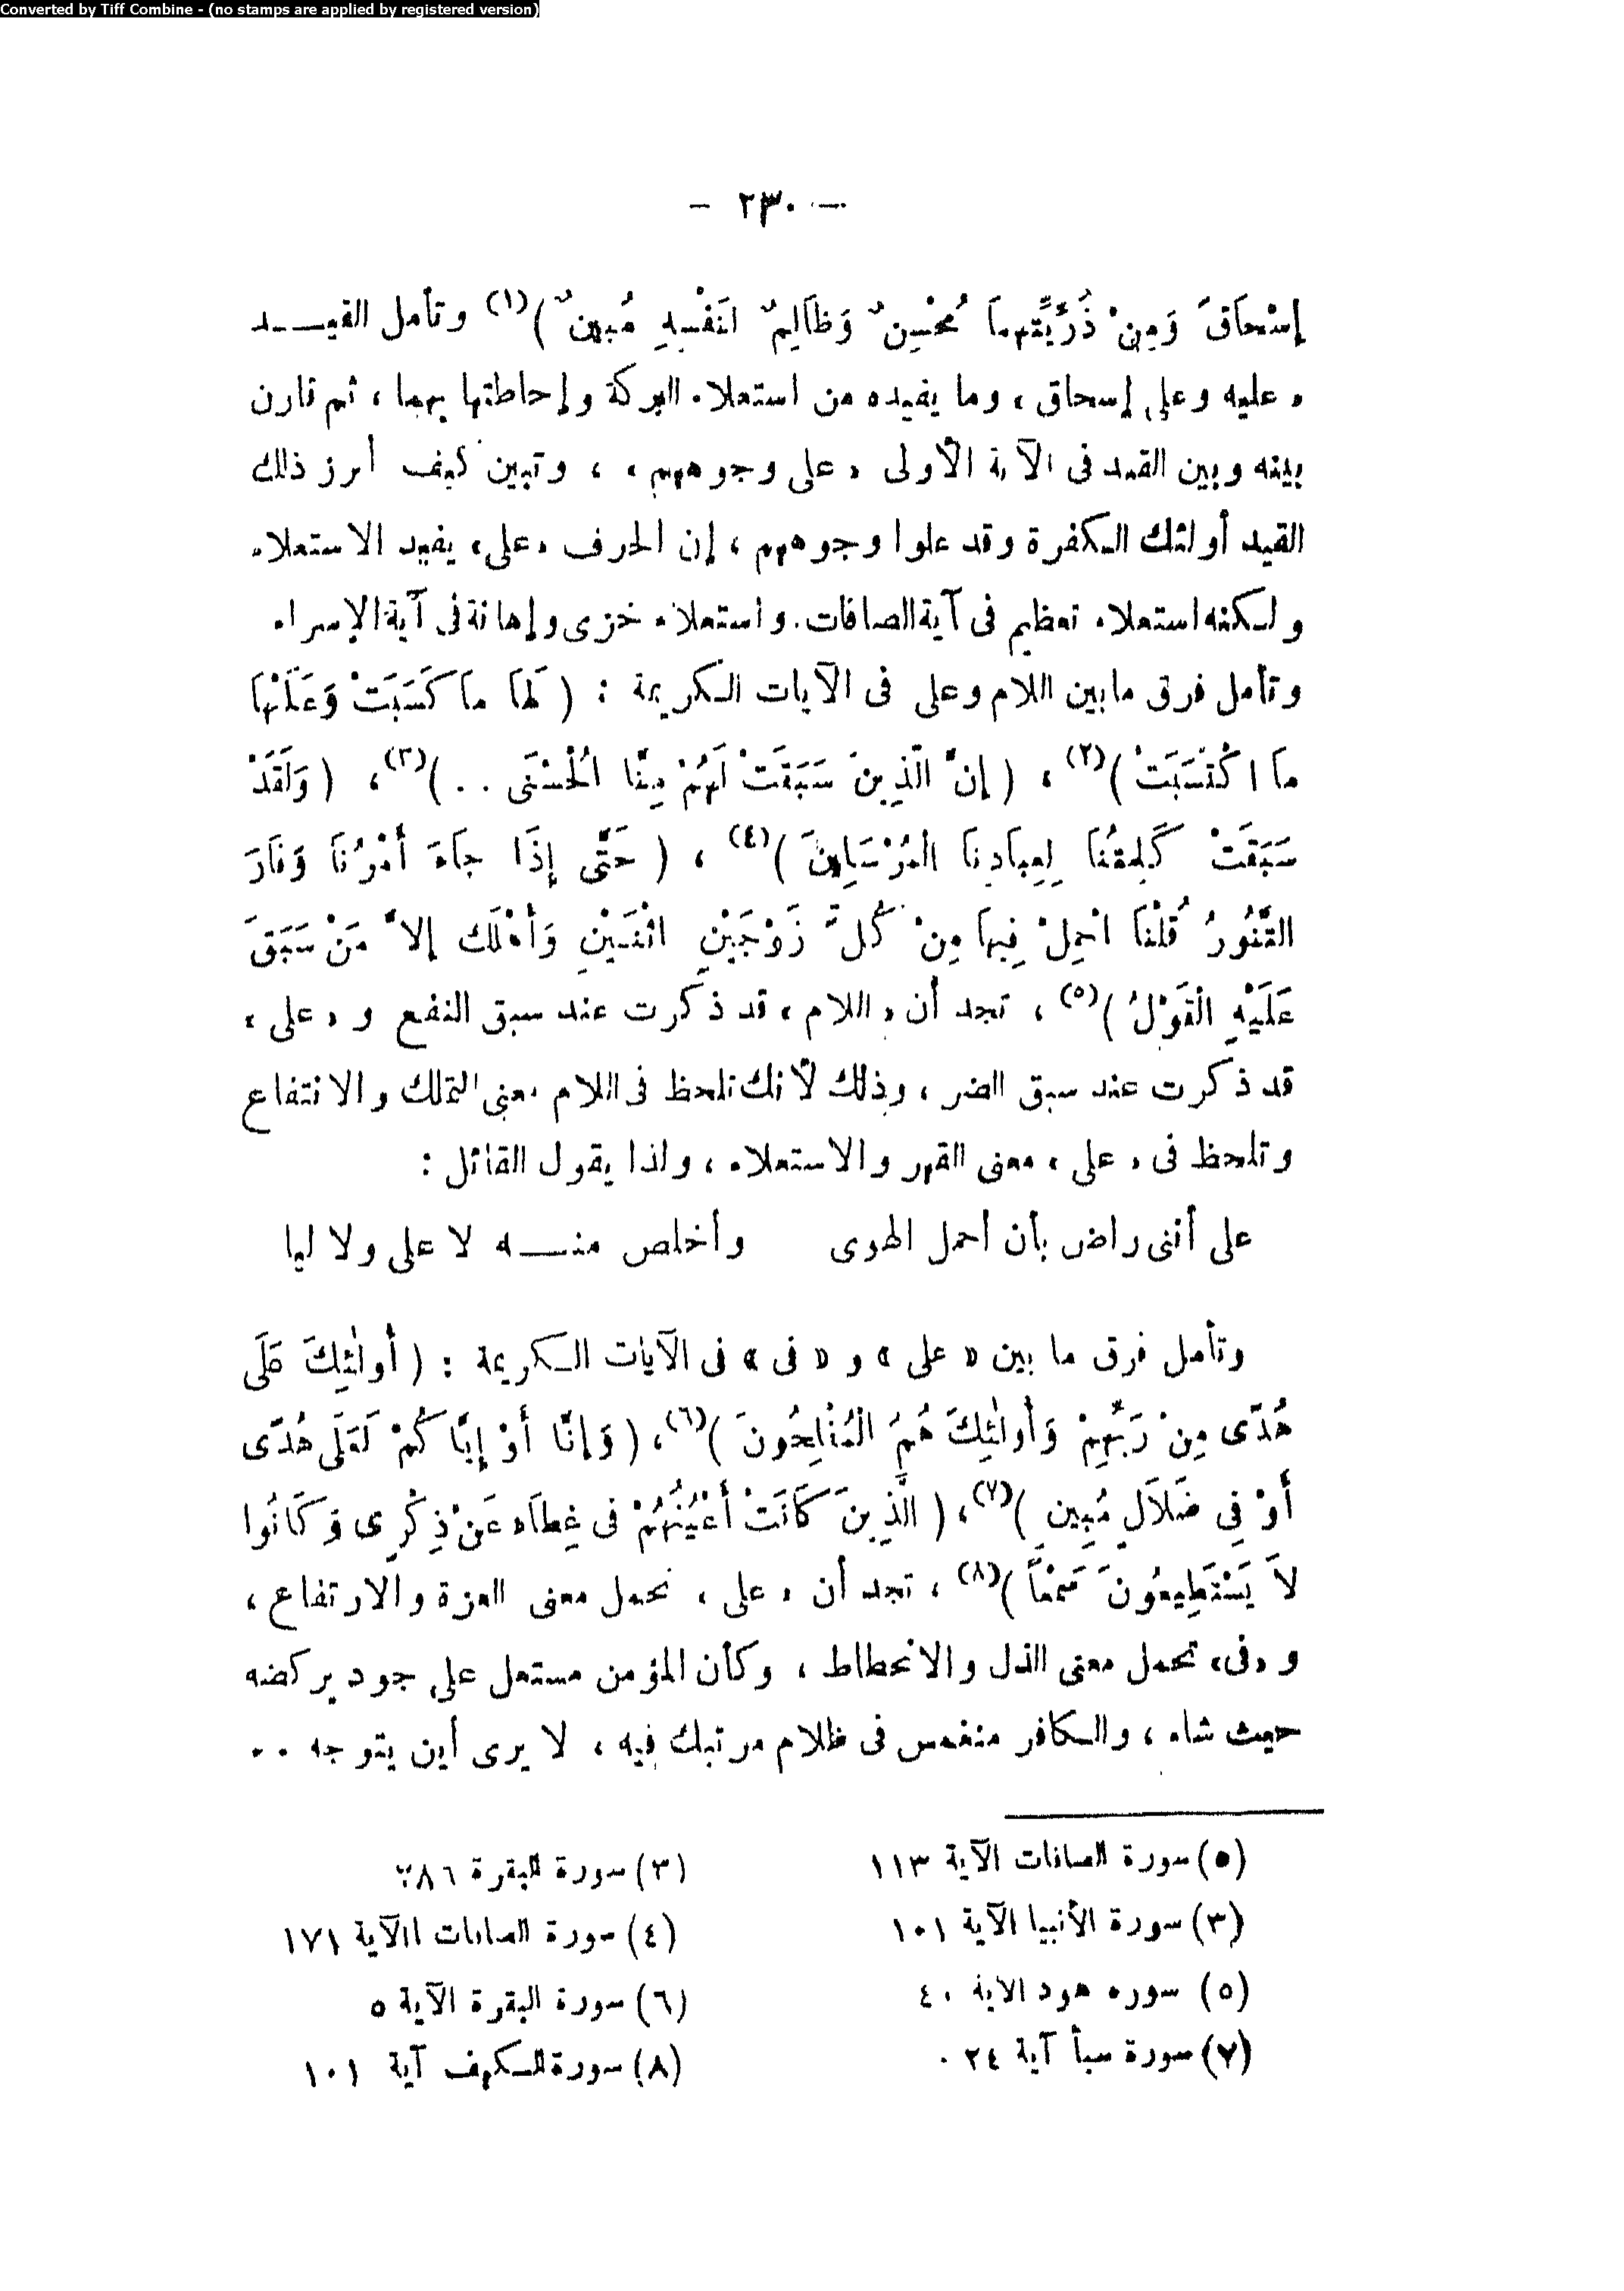 Converted by Tiff Combine - (no stamps are applied by registered version)
- ٢٣٠ -
إِسْحَاقَ وَمِنْ ذُرِّيَّتِهِمَا مُحْسِنٌ وَظَالِمٌ لِنَفْسِهِ مُبِينٌ )(١) وتأمل القيــد
« عليه وعلى إسحاق » وما يفيده من استعلاء البركة وإحاطتها بهما ، ثم قارن
بينه وبين القيد فى الآية الأولى « على وجوههم » ، وتبين كيف أبرز ذلك
القيد أولئك الـكفرة وقد علوا وجوههم ، إن الحرف «على» يفيد الاستعلاء
ولـكنه استعلاء تعظيم فى آية الصافات. واستعلاء خزى وإهانة فى آية الإسراء
وتأمل فرق مابين اللام وعلى فى الآيات الـكريمة : ( لَهَا مَا كَسَبَتْ وَعَلَيْهَا
مَا اكْتَسَبَتْ )(٢) ، ( إِنَّ الَّذِينَ سَبَقَتْ لَهُمْ مِنَّا الْحُسْنَى . . )(٣) ، ( وَلَقَدْ
سَبَقَتْ كَلِمَتُنَا لِعِبَادِنَا الْمُرْسَلِينَ )(٤) ، ( حَتَّى إِذَا جَاءَ أَمْرُنَا وَفَارَ
التَّنُّورُ قُلْنَا احْمِلْ فِيهَا مِنْ كُلٍّ زَوْجَيْنِ اثْنَيْنِ وَأَهْلَكَ إِلاَّ مَنْ سَبَقَ
عَلَيْهِ الْقَوْلُ )(٥) ، تجد أن « اللام » قد ذكرت عند سبق النفع و « على »
قد ذكرت عند سبق الضر ، وذلك لأنك تلحظ فى اللام معنى التملك والانتفاع
وتلحظ فى « على » معنى القهر والاستعلاء ، ولذا يقول القائل :
على أننى راض بأن أحمل الهوى وأخلص منــه لا على ولا ليا
وتأمل فرق ما بين « على » و « فى » فى الآيات الـكريمة : ( أُولَٰئِكَ عَلَى
هُدًى مِنْ رَبِّهِمْ وَأُولَٰئِكَ هُمُ الْمُفْلِحُونَ )(٦) ، ( وَإِنَّا أَوْ إِيَّاكُمْ لَعَلَى هُدًى
أَوْ فِى ضَلَالٍ مُبِينٍ )(٧) ، ( الَّذِينَ كَانَتْ أَعْيُنُهُمْ فِى غِطَاءٍ عَنْ ذِكْرِى وَكَانُوا
لاَ يَسْتَطِيعُونَ سَمْعاً )(٨) ، تجد أن « على » تحمل معنى العزة والارتفاع ،
و «فى» تحمل معنى الذل والانحطاط ، وكأن المؤمن مستعل على جود يركضه
حيث شاء ، والـكافر منغمس فى ظلام مرتبك فيه ، لا يرى أين يتوجه . .
(٥) سورة الصافات الآية ١١٣ (٣) سورة البقرة ٢٨٦
(٣) سورة الأنبيا الآية ١٠١ (٤) سورة الصافات االآية ١٧١
(٥) سورة هود الآية ٤٠ (٦) سورة البقرة الآية ٥
(٧) سورة سبأ آية ٢٤ . (٨) سورة الـكهف آية ١٠١